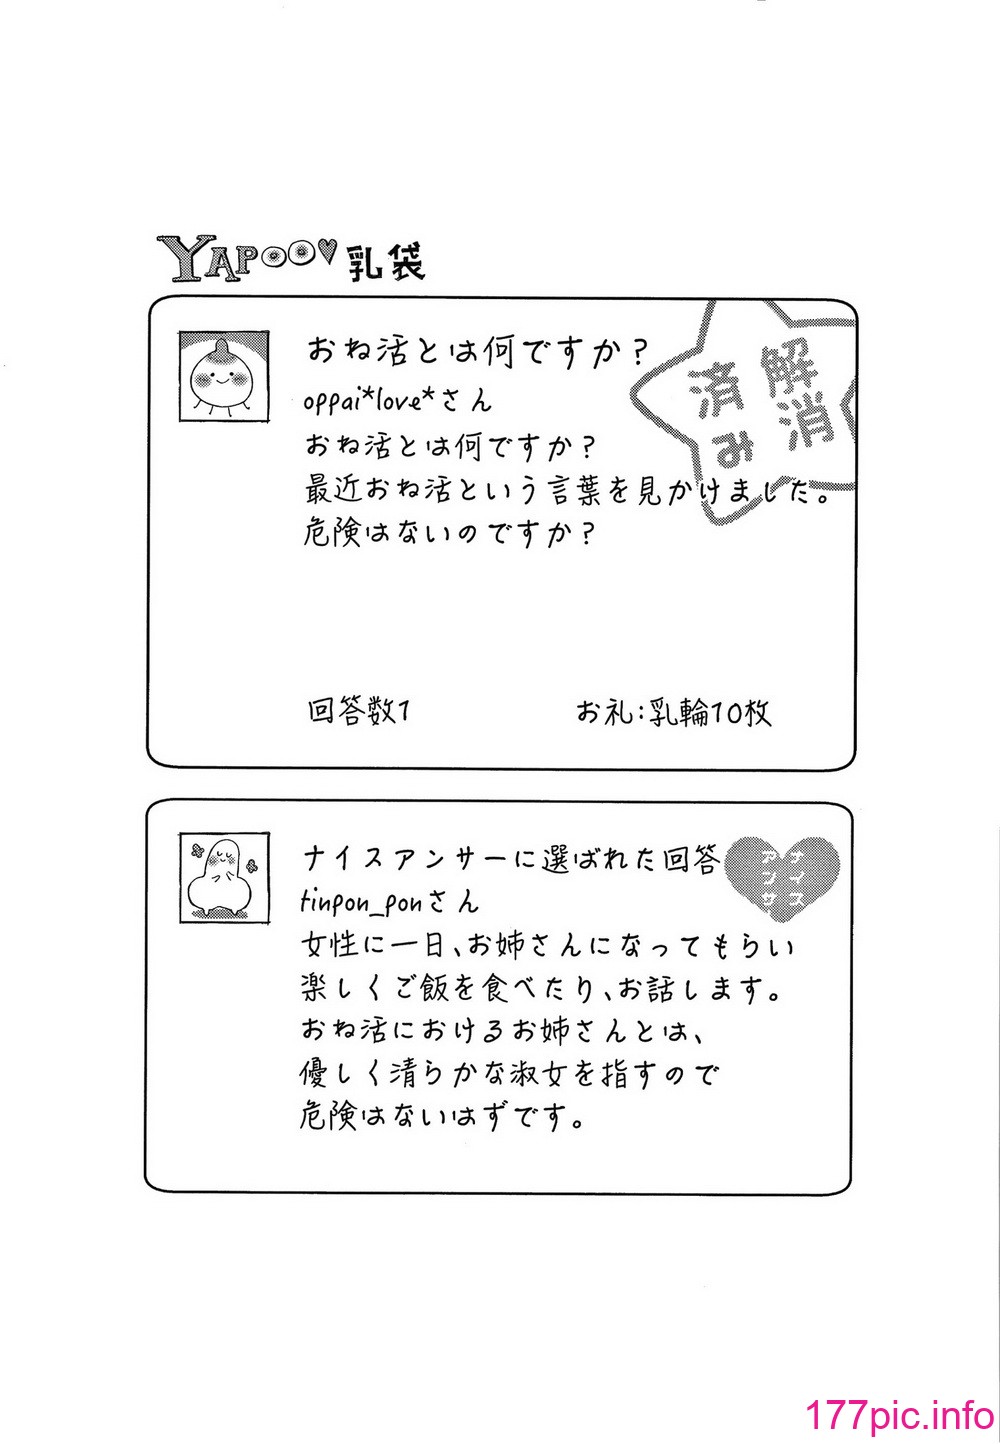 YAPOO♥乳袋
おね活とは何ですか？
oppai*love*さん
解消
済み
おね活とは何ですか？
最近おね活という言葉を見かけました。
危険はないのですか？
回答数1
お礼：乳輪10枚
ナイスアンサーに選ばれた回答
ナイス
アンサー
tinpon_ponさん
女性に一日、お姉さんになってもらい
楽しくご飯を食べたり、お話します。
おね活におけるお姉さんとは、
優しく清らかな淑女を指すので
危険はないはずです。
177pic.info